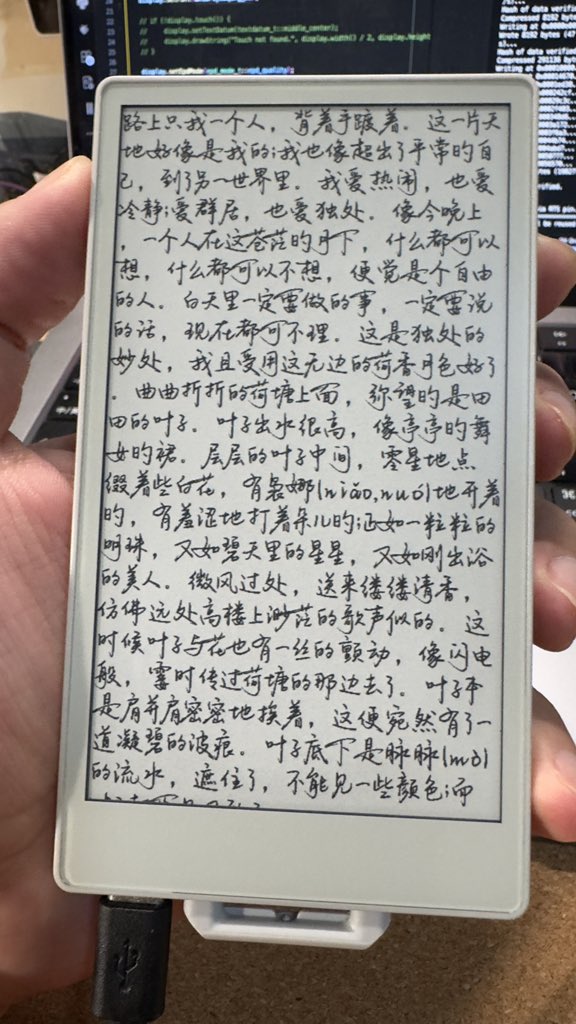 // if (!display.touch()) {
//     display.setTextDatum(textdatum_t::middle_center);
//     display.drawString("Touch not found.", display.width() / 2, display.height
// }
display.setEpdMode(epd_mode_t::epd_quality);
Compressed 8192 bytes
路上只我一个人，背着手踱着。这一片天
地好像是我的;我也像超出了平常的自
己，到了另一世界里。我爱热闹，也爱
冷静;爱群居，也爱独处。像今晚上
，一个人在这苍茫的月下，什么都可以
想，什么都可以不想，便觉是个自由
的人。白天里一定要做的事，一定要说
的话，现在都可不理。这是独处的
妙处，我且受用这无边的荷香月色好了
。曲曲折折的荷塘上面，弥望的是田
田的叶子。叶子出水很高，像亭亭的舞
女的裙。层层的叶子中间，零星地点
缀着些白花，有袅娜(niǎo,nuó)地开着
的，有羞涩地打着朵儿的;正如一粒粒的
明珠，又如碧天里的星星，又如刚出浴
的美人。微风过处，送来缕缕清香，
仿佛远处高楼上渺茫的歌声似的。这
时候叶子与花也有一丝的颤动，像闪电
般，霎时传过荷塘的那边去了。叶子本
是肩并肩密密地挨着，这便宛然有了一
道凝碧的波痕。叶子底下是脉脉(mò)
的流水，遮住了，不能见一些颜色;而